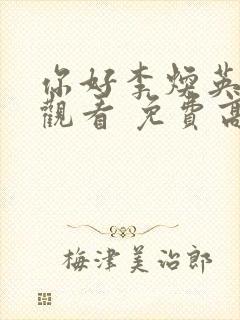 你好李煥英
觀看 免費高
梅津美治郎